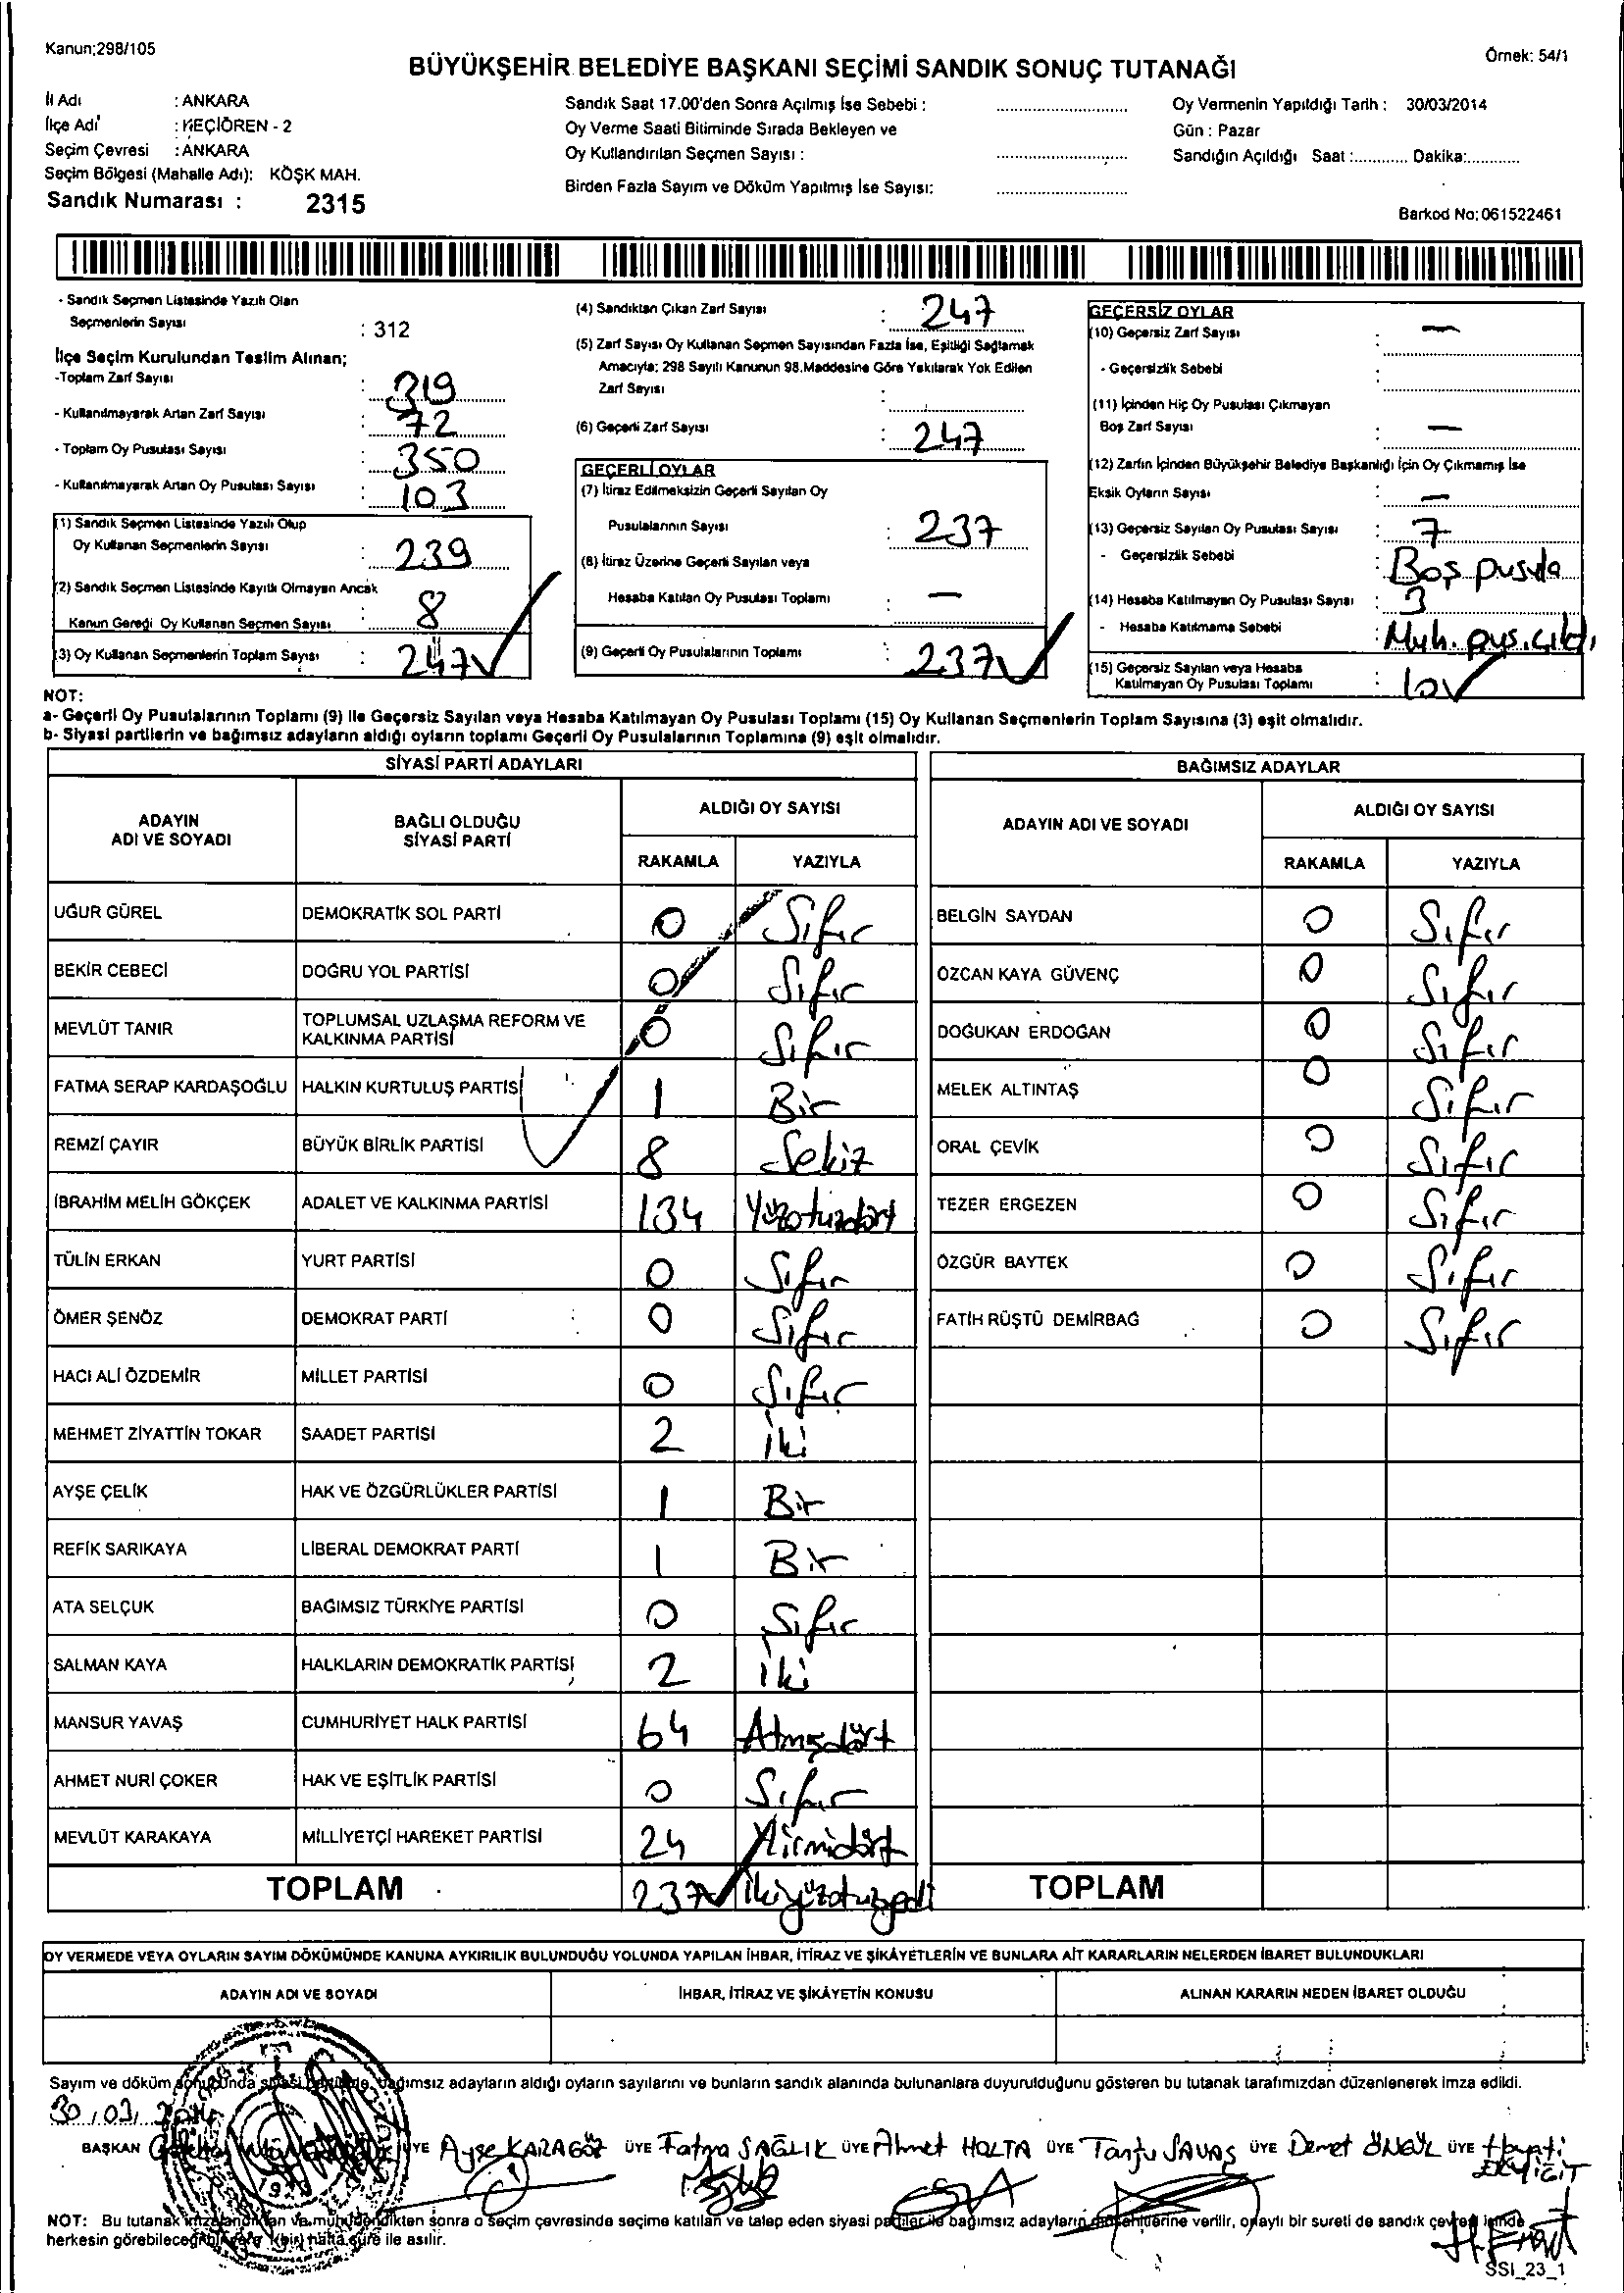 Kanun;298/105
Örnek: 54/1
BÜYÜKŞEHİR BELEDİYE BAŞKANI SEÇİMİ SANDIK SONUÇ TUTANAĞI
İl Adı : ANKARA
İlçe Adı : KEÇİÖREN - 2
Seçim Çevresi : ANKARA
Seçim Bölgesi (Mahalle Adı): KÖŞK MAH.
Sandık Numarası : 2315
Sandık Saat 17.00'den Sonra Açılmış İse Sebebi :
Oy Verme Saati Bitiminde Sırada Bekleyen ve
Oy Kullandırılan Seçmen Sayısı :
Birden Fazla Sayım ve Döküm Yapılmış İse Sayısı:
Oy Vermenin Yapıldığı Tarih : 30/03/2014
Gün : Pazar
Sandığın Açıldığı Saat :............ Dakika:............
Barkod No: 061522461
- Sandık Seçmen Listesinde Yazılı Olan
Seçmenlerin Sayısı : 312
İlçe Seçim Kurulundan Teslim Alınan;
-Toplam Zarf Sayısı : 319
- Kullanılmayarak Artan Zarf Sayısı : 72
- Toplam Oy Pusulası Sayısı : 350
- Kullanılmayarak Artan Oy Pusulası Sayısı : 103
(1) Sandık Seçmen Listesinde Yazılı Olup
Oy Kullanan Seçmenlerin Sayısı : 239
(2) Sandık Seçmen Listesinde Kayıtlı Olmayan Ancak
Kanun Gereği Oy Kullanan Seçmen Sayısı : 8
(3) Oy Kullanan Seçmenlerin Toplam Sayısı : 247
(4) Sandıktan Çıkan Zarf Sayısı : 247
(5) Zarf Sayısı Oy Kullanan Seçmen Sayısından Fazla İse, Eşitliği Sağlamak
Amacıyla; 298 Sayılı Kanunun 98.Maddesine Göre Yakılarak Yok Edilen
Zarf Sayısı :
(6) Geçerli Zarf Sayısı : 247
GEÇERLİ OYLAR
(7) İtiraz Edilmeksizin Geçerli Sayılan Oy
Pusulalarının Sayısı : 237
(8) İtiraz Üzerine Geçerli Sayılan veya
Hesaba Katılan Oy Pusulası Toplamı : —
(9) Geçerli Oy Pusulalarının Toplamı : 237
GEÇERSİZ OYLAR
(10) Geçersiz Zarf Sayısı : —
- Geçersizlik Sebebi :
(11) İçinden Hiç Oy Pusulası Çıkmayan
Boş Zarf Sayısı : —
(12) Zarfın İçinden Büyükşehir Belediye Başkanlığı İçin Oy Çıkmamış İse
Eksik Oyların Sayısı : —
(13) Geçersiz Sayılan Oy Pusulası Sayısı : 7
- Geçersizlik Sebebi : Boş pusula
(14) Hesaba Katılmayan Oy Pusulası Sayısı : 3
- Hesaba Katılmama Sebebi : Muh. pus. çıktı
(15) Geçersiz Sayılan veya Hesaba
Katılmayan Oy Pusulası Toplamı : 10
NOT:
a- Geçerli Oy Pusulalarının Toplamı (9) ile Geçersiz Sayılan veya Hesaba Katılmayan Oy Pusulası Toplamı (15) Oy Kullanan Seçmenlerin Toplam Sayısına (3) eşit olmalıdır.
b- Siyasi partilerin ve bağımsız adayların aldığı oyların toplamı Geçerli Oy Pusulalarının Toplamına (9) eşit olmalıdır.
SİYASİ PARTİ ADAYLARI
ADAYIN ADI VE SOYADI
BAĞLI OLDUĞU SİYASİ PARTİ
ALDIĞI OY SAYISI
RAKAMLA YAZIYLA
UĞUR GÜREL DEMOKRATİK SOL PARTİ 0 Sıfır
BEKİR CEBECİ DOĞRU YOL PARTİSİ 0 Sıfır
MEVLÜT TANIR TOPLUMSAL UZLAŞMA REFORM VE KALKINMA PARTİSİ 0 Sıfır
FATMA SERAP KARDAŞOĞLU HALKIN KURTULUŞ PARTİSİ 1 Bir
REMZİ ÇAYIR BÜYÜK BİRLİK PARTİSİ 8 Sekiz
İBRAHİM MELİH GÖKÇEK ADALET VE KALKINMA PARTİSİ 134 Yüzotuzdört
TÜLİN ERKAN YURT PARTİSİ 0 Sıfır
ÖMER ŞENÖZ DEMOKRAT PARTİ 0 Sıfır
HACI ALİ ÖZDEMİR MİLLET PARTİSİ 0 Sıfır
MEHMET ZİYATTİN TOKAR SAADET PARTİSİ 2 İki
AYŞE ÇELİK HAK VE ÖZGÜRLÜKLER PARTİSİ 1 Bir
REFİK SARIKAYA LİBERAL DEMOKRAT PARTİ 1 Bir
ATA SELÇUK BAĞIMSIZ TÜRKİYE PARTİSİ 0 Sıfır
SALMAN KAYA HALKLARIN DEMOKRATİK PARTİSİ 2 İki
MANSUR YAVAŞ CUMHURİYET HALK PARTİSİ 64 Atmışdört
AHMET NURİ ÇOKER HAK VE EŞİTLİK PARTİSİ 0 Sıfır
MEVLÜT KARAKAYA MİLLİYETÇİ HAREKET PARTİSİ 24 Yirmidört
TOPLAM 237 İkiyüzotuzyedi
BAĞIMSIZ ADAYLAR
ADAYIN ADI VE SOYADI
ALDIĞI OY SAYISI
RAKAMLA YAZIYLA
BELGİN SAYDAN 0 Sıfır
ÖZCAN KAYA GÜVENÇ 0 Sıfır
DOĞUKAN ERDOĞAN 0 Sıfır
MELEK ALTINTAŞ 0 Sıfır
ORAL ÇEVİK 0 Sıfır
TEZER ERGEZEN 0 Sıfır
ÖZGÜR BAYTEK 0 Sıfır
FATİH RÜŞTÜ DEMİRBAĞ 0 Sıfır
TOPLAM
OY VERMEDE VEYA OYLARIN SAYIM DÖKÜMÜNDE KANUNA AYKIRILIK BULUNDUĞU YOLUNDA YAPILAN İHBAR, İTİRAZ VE ŞİKÂYETLERİN VE BUNLARA AİT KARARLARIN NELERDEN İBARET BULUNDUKLARI
ADAYIN ADI VE SOYADI
İHBAR, İTİRAZ VE ŞİKÂYETİN KONUSU
ALINAN KARARIN NEDEN İBARET OLDUĞU
Sayım ve döküm sonucunda siyasi bağımsız adayların aldığı oyların sayılarını ve bunların sandık alanında bulunanlara duyurulduğunu gösteren bu tutanak tarafımızdan düzenlenerek imza edildi.
30/03/2014
BAŞKAN ÜYE Ayşe KARAGÖZ ÜYE Fatma SAĞLIK ÜYE Ahmet HOLTA ÜYE Tanju SAVAŞ ÜYE Demet ÖNGÜL ÜYE Hayati
NOT: Bu tutanak imzalandıktan ve mühürlendikten sonra o seçim çevresinde seçime katılan ve talep eden siyasi partiler ile bağımsız adayların verilir, onaylı bir sureti de sandık çevresi içinde
herkesin görebileceği bir yere 1(bir) hafta süre ile asılır.
SSI_23_1